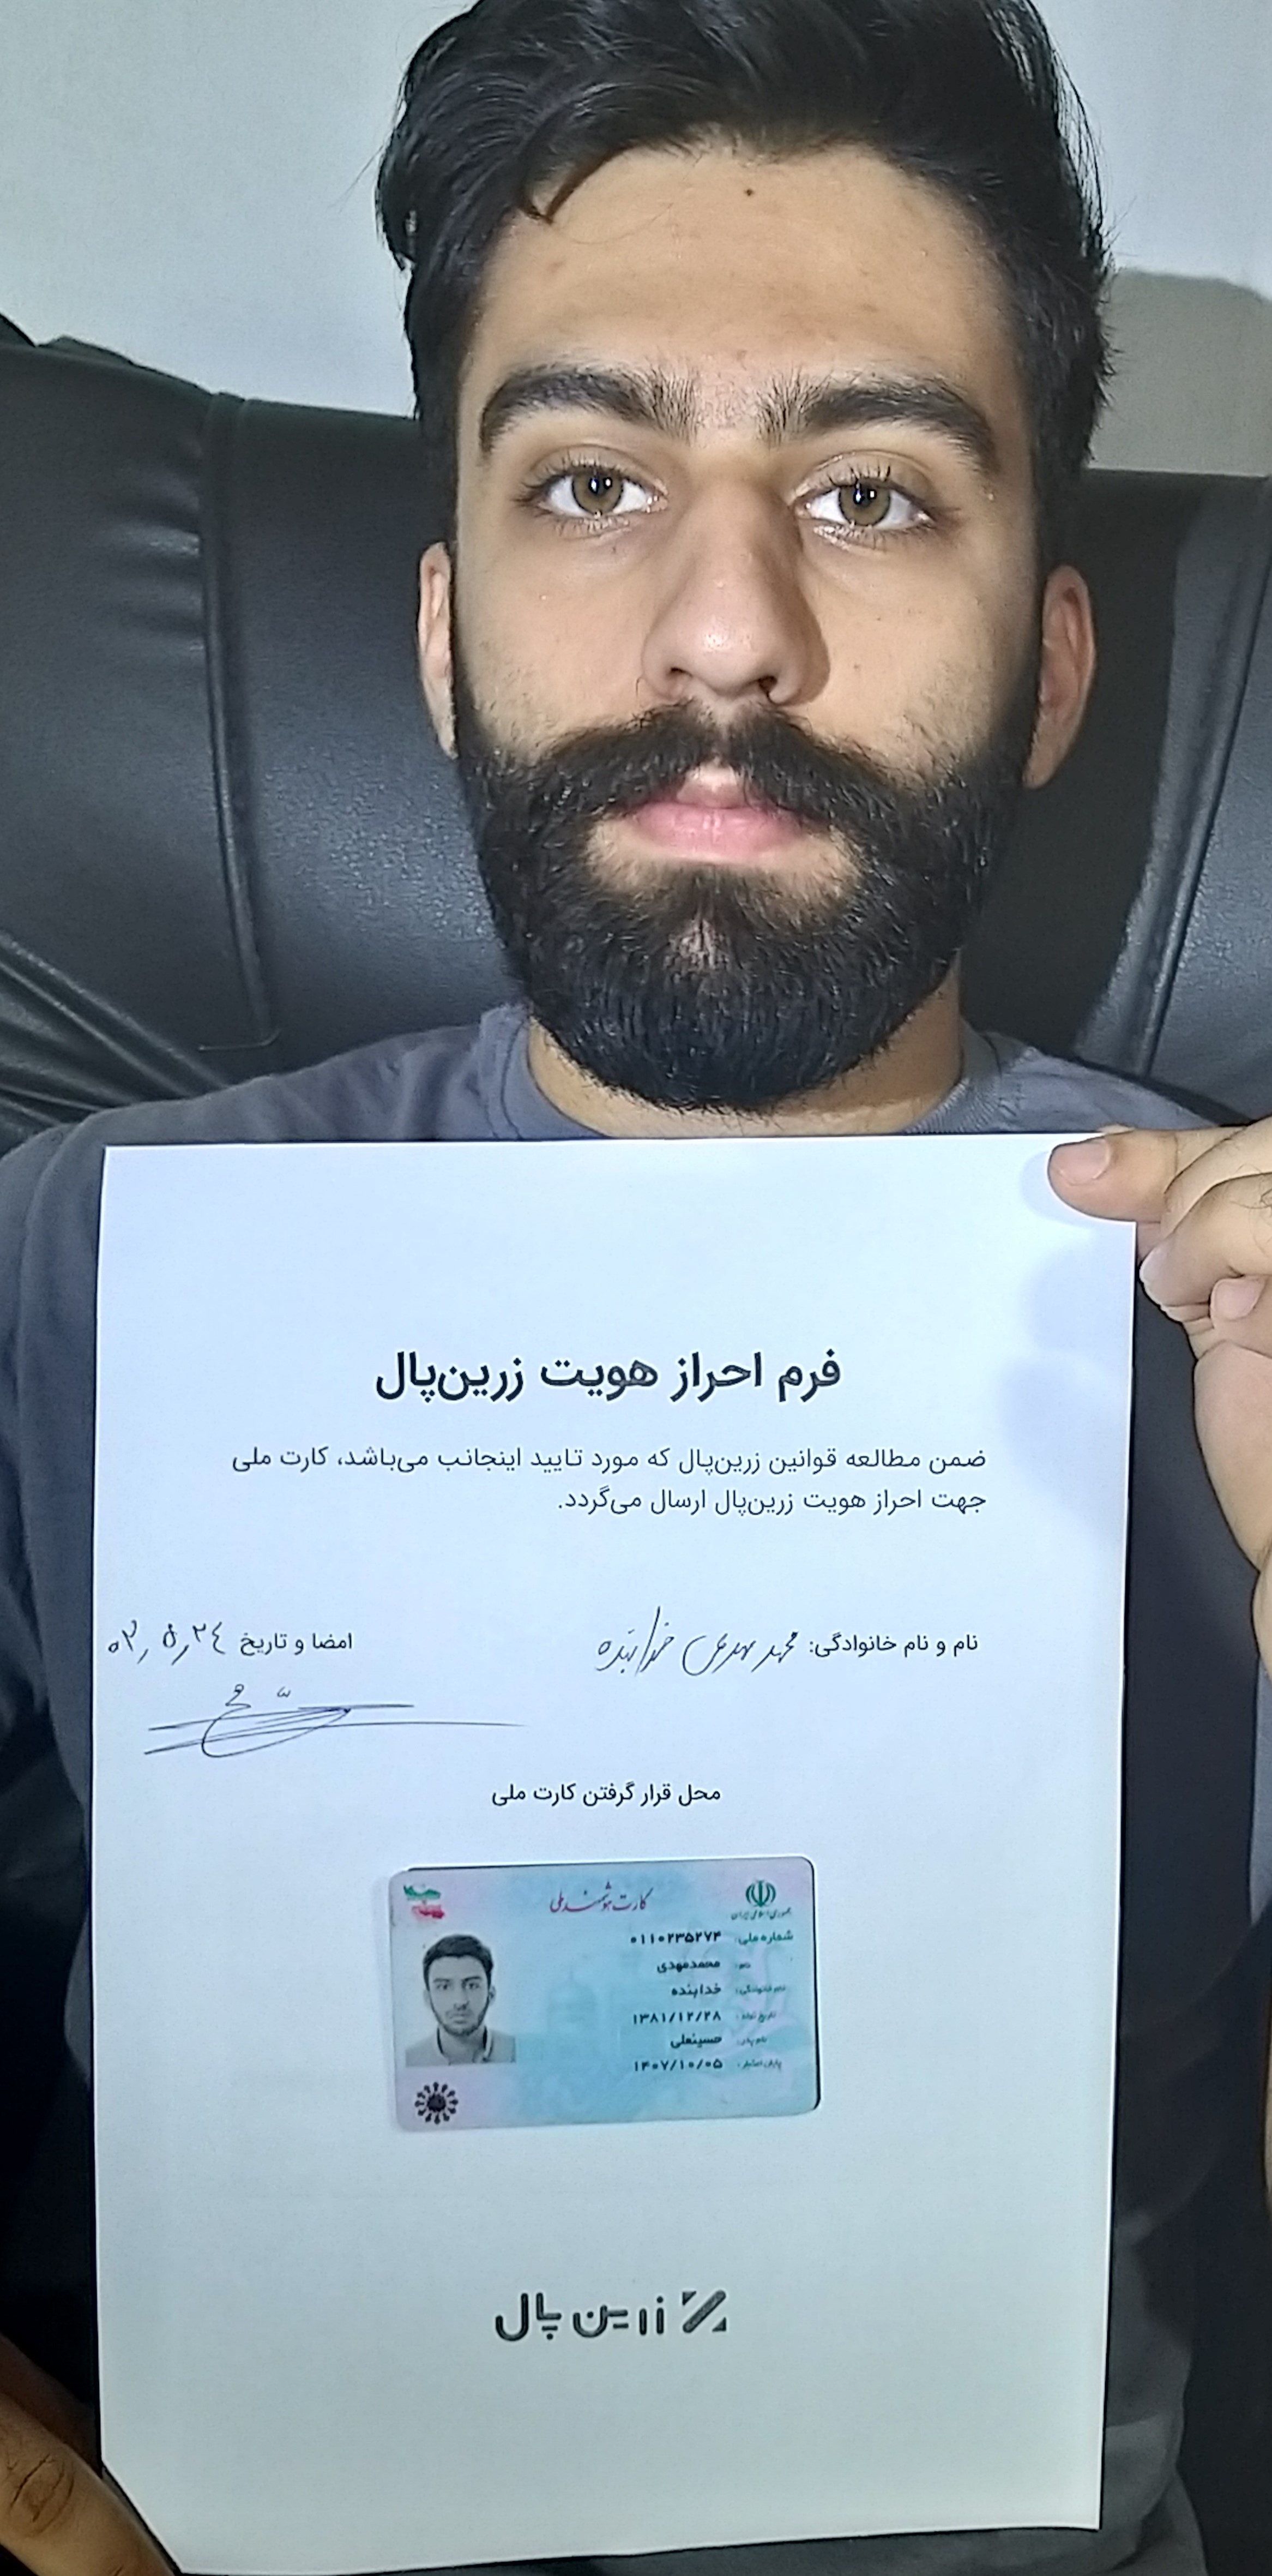 فرم احراز هویت زرین‌پال
ضمن مطالعه قوانین زرین‌پال که مورد تایید اینجانب می‌باشد، کارت ملی
جهت احراز هویت زرین‌پال ارسال می‌گردد.
نام و نام خانوادگی: محمد مهدی خدابنده
امضا و تاریخ ۰۳,۵,۲۴
محل قرار گرفتن کارت ملی
کارت هوشمند ملی
جمهوری اسلامی ایران
شماره ملی: ۰۱۱۰۲۳۵۲۷۴
نام: محمدمهدی
نام خانوادگی: خدابنده
تاریخ تولد: ۱۳۸۱/۱۲/۲۸
نام پدر: حسینعلی
پایان اعتبار: ۱۴۰۷/۱۰/۰۵
زرین پال